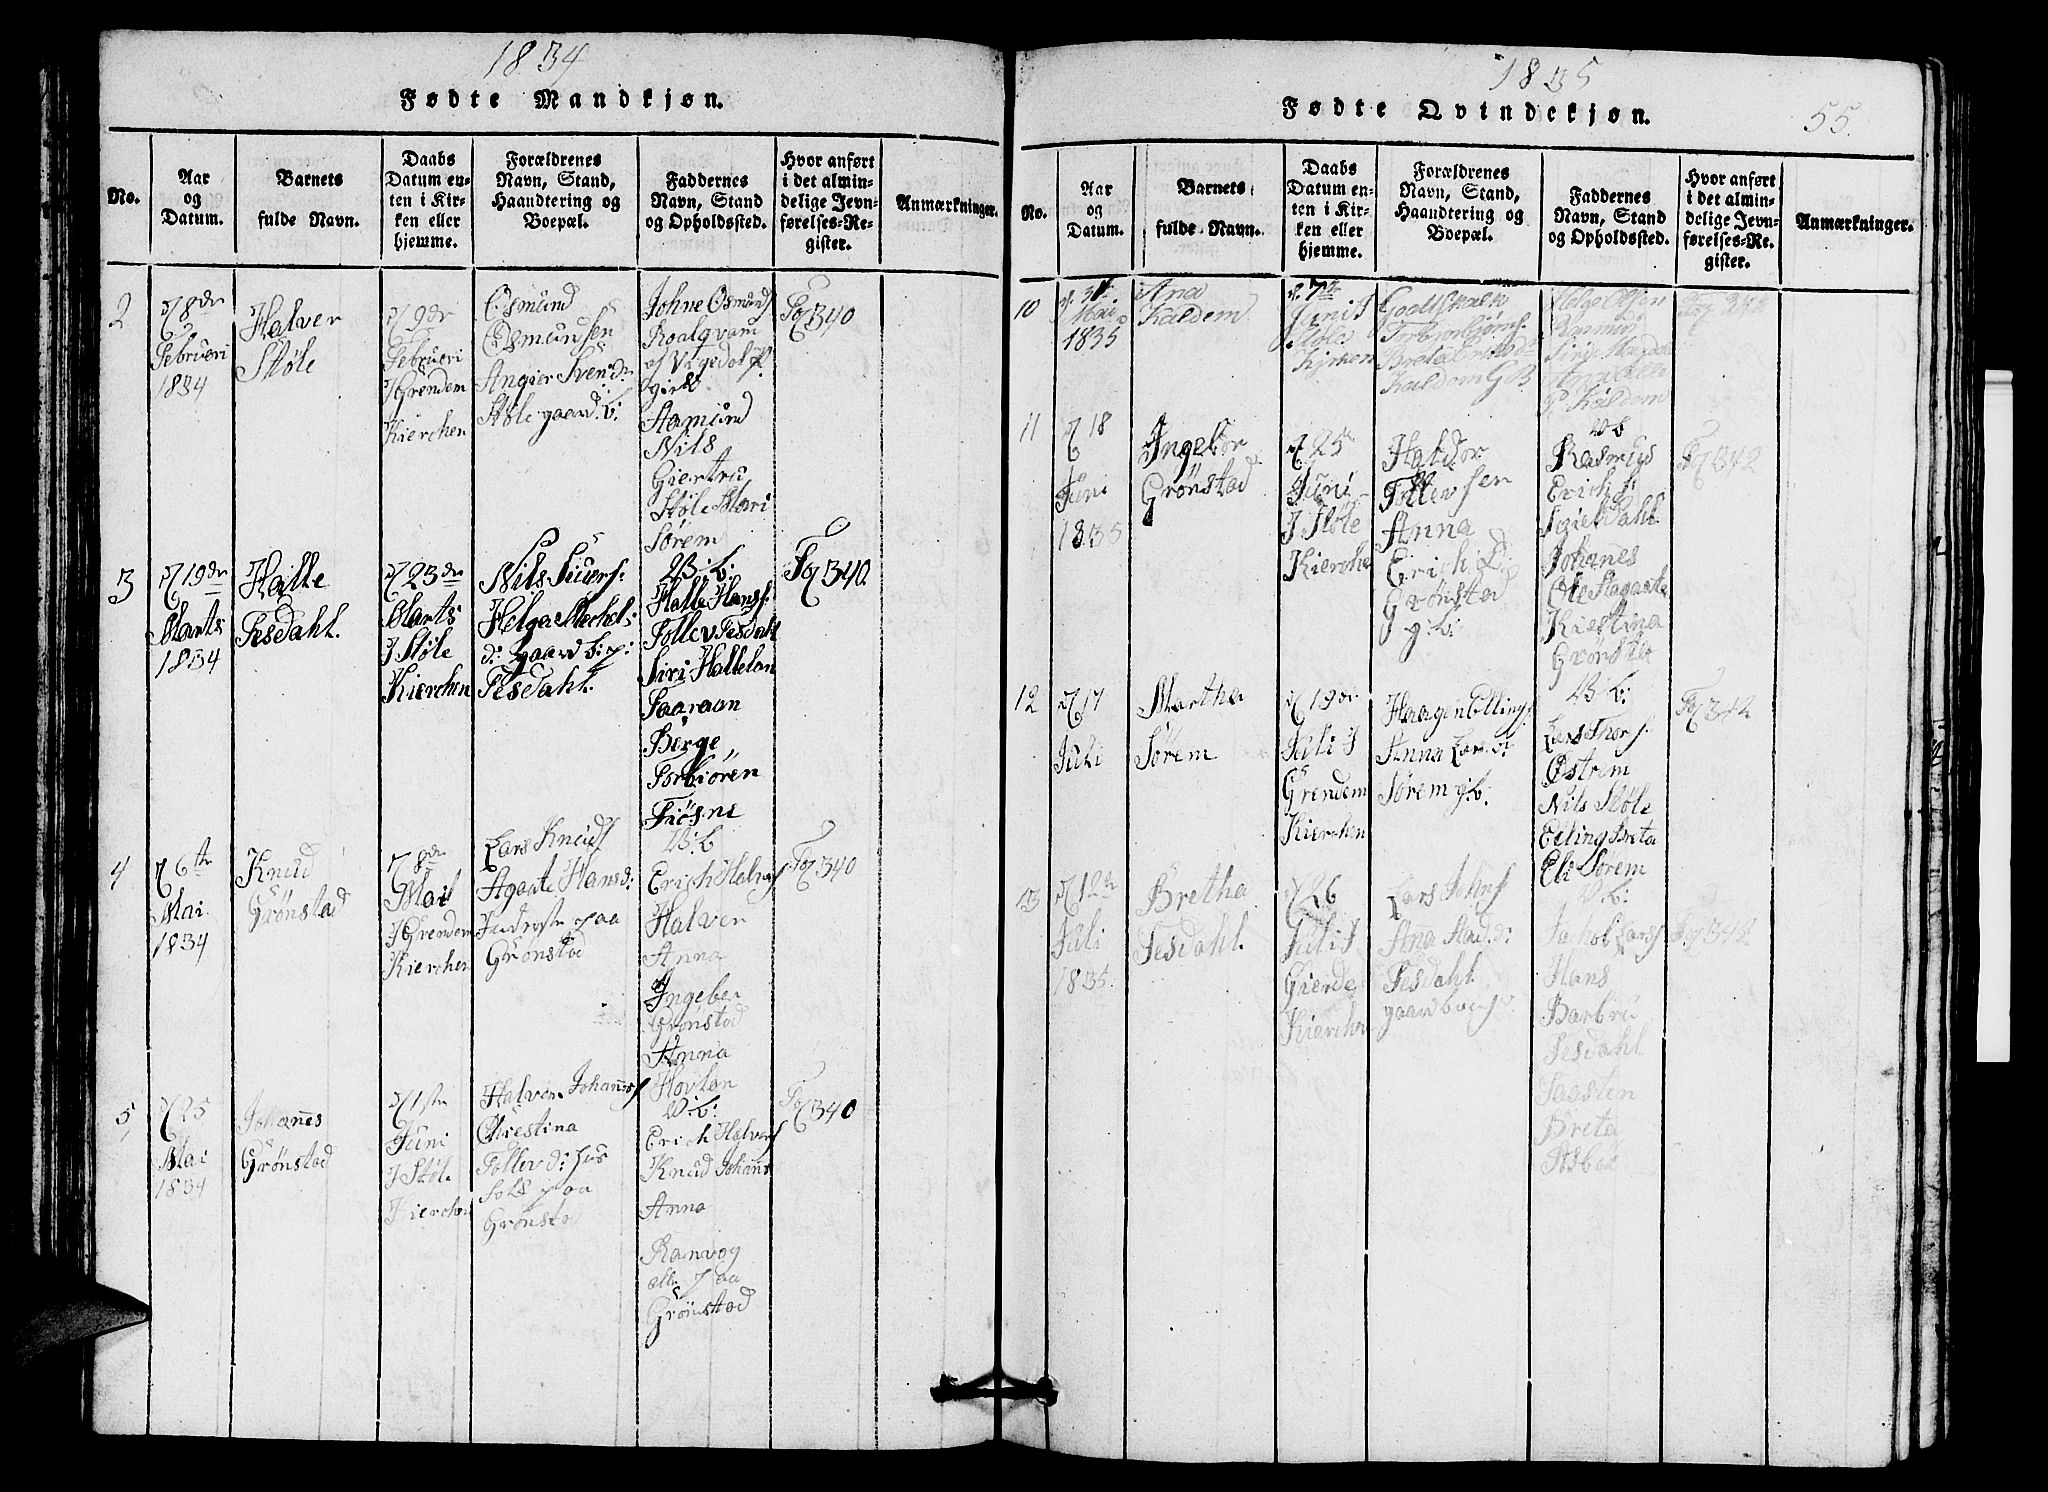 1834
Fødte Mandkjøn.
No.
Aar
og
Datum.
Barnets
fulde Navn.
Daabs
Datum en-
ten i Kir-
ken eller
hjemme.
Forældrenes
Navn, Stand,
Haandtering og
Boepæl.
Faddernes
Navn, Stand
og Opholdssted.
Hvor anført
i det almin-
delige Jevn-
førelses-Re-
gister.
Anmærkninger.
2
8de
Februeri
1834
Halver
Støle
9de
Februeri
I Grendem
Kierchen
Osmund
Osmundsen
Angier Svensd:
Støle gaard b:
Johne Osmunds
Roalqvam
Hamund
Nils
Giertru
Støle Mari
Sørem
Fol 340
3
19de
Marts
1834
Halle
Tesdahl.
23de
Marts
I Støle
Kierchen
Nils Siuers:
Helga Michels:
d: gaard b: p:
Tesdahl.
V: b:
Halle Hans:
Tollev Tesdahl
Siri Hallelan
Taaraan
Berge
Torbiören
Fiøsne
Fol 340
4
6te
Mai
1834
Knud
Grönstad
8de
Mai
I Grendem
Kierchen
Lars Knuds
Agaate Hansd:
Inderste paa
Grönstad
V: b
Erich Halvers
Halver
Anna
Ingeber
Grönstad
Anna
Hovlan
Fol 340
5
25
Mai
1834
Johañes
Grönstad
1ste
Juni
I Støle
Kierchen
Halver Johañes
Christina
Tollev d: hus
folk paa
Grönstad
V: b:
Erich Halvers
Knud Johans
Anna
Ranvog
alle paa
Grönstad
Fol 340
1835
Fødte Qvindekjøn.
55.
No.
Aar
og
Datum.
Barnets
fulde Navn.
Daabs
Datum en-
ten i Kir-
ken eller
hjemme.
Forældrenes
Navn, Stand,
Haandtering og
Boepæl.
Faddernes
Navn, Stand
og Opholdssted.
Hvor anført
i det almin-
delige Jevn-
førelses-Re-
gister.
Anmærkninger.
10
d. 31te
Mai
1835
Ana
Kaldem
d. 7de
Juni I
Støle
Kirken
Godtskalk
Torbiørns.
Kaldem G B
Helge Olsen
Kaldem
11
18
Juni
1835
Ingebor
Grönstad
25
Juni
I Støle
Kierche
Haldor
Tollevsen
Anna
Erich D:
Grönstad
g: b:
V b
Rasmus
Erichs
Dahl
Johanes
Ole Aagaate
Kiestina
Grönstad
Fol 342
12
17
Juli
Martha
Sörem
19de
Juli I
Grendem
Kierchen
Haagen Ellings
Anna Lars d:
Sörem g: b:
V: b:
Lars Thors
Østrem
Nils Støle
Elling Breta
Eli Sörem
Fol 342
13
12te
Juli
1835.
Bretha
Tesdahl.
26
Juli I
Gierde
Kierchen
Lars Johns
Ana
Tesdahl.
gaardbruger
V: b:
Jakob Lars
Hans
Barbru
Tesdahl
Taasten
Breta
Asboe
Fol 342